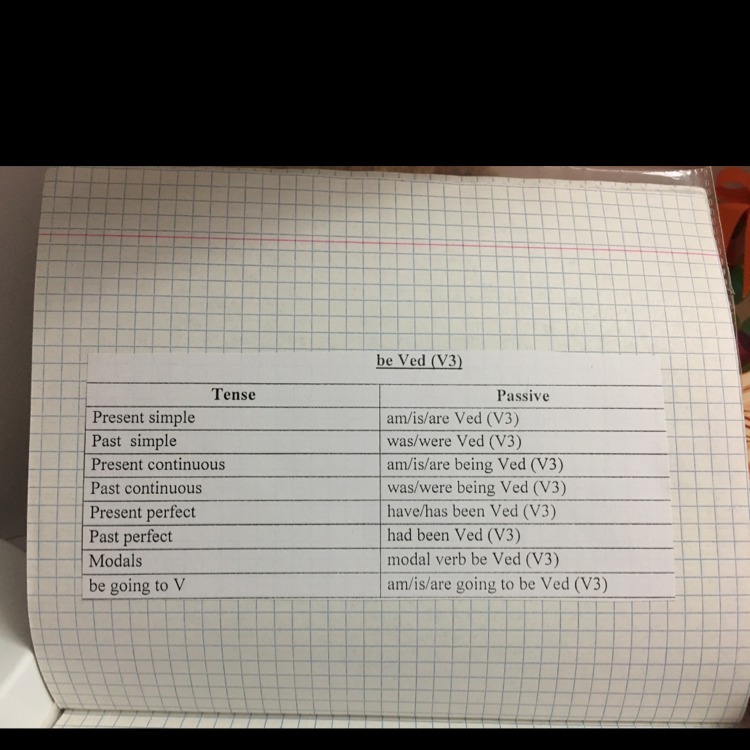 be Ved (V3)
Tense Passive
Present simple am/is/are Ved (V3)
Past simple was/were Ved (V3)
Present continuous am/is/are being Ved (V3)
Past continuous was/were being Ved (V3)
Present perfect have/has been Ved (V3)
Past perfect had been Ved (V3)
Modals modal verb be Ved (V3)
be going to V am/is/are going to be Ved (V3)